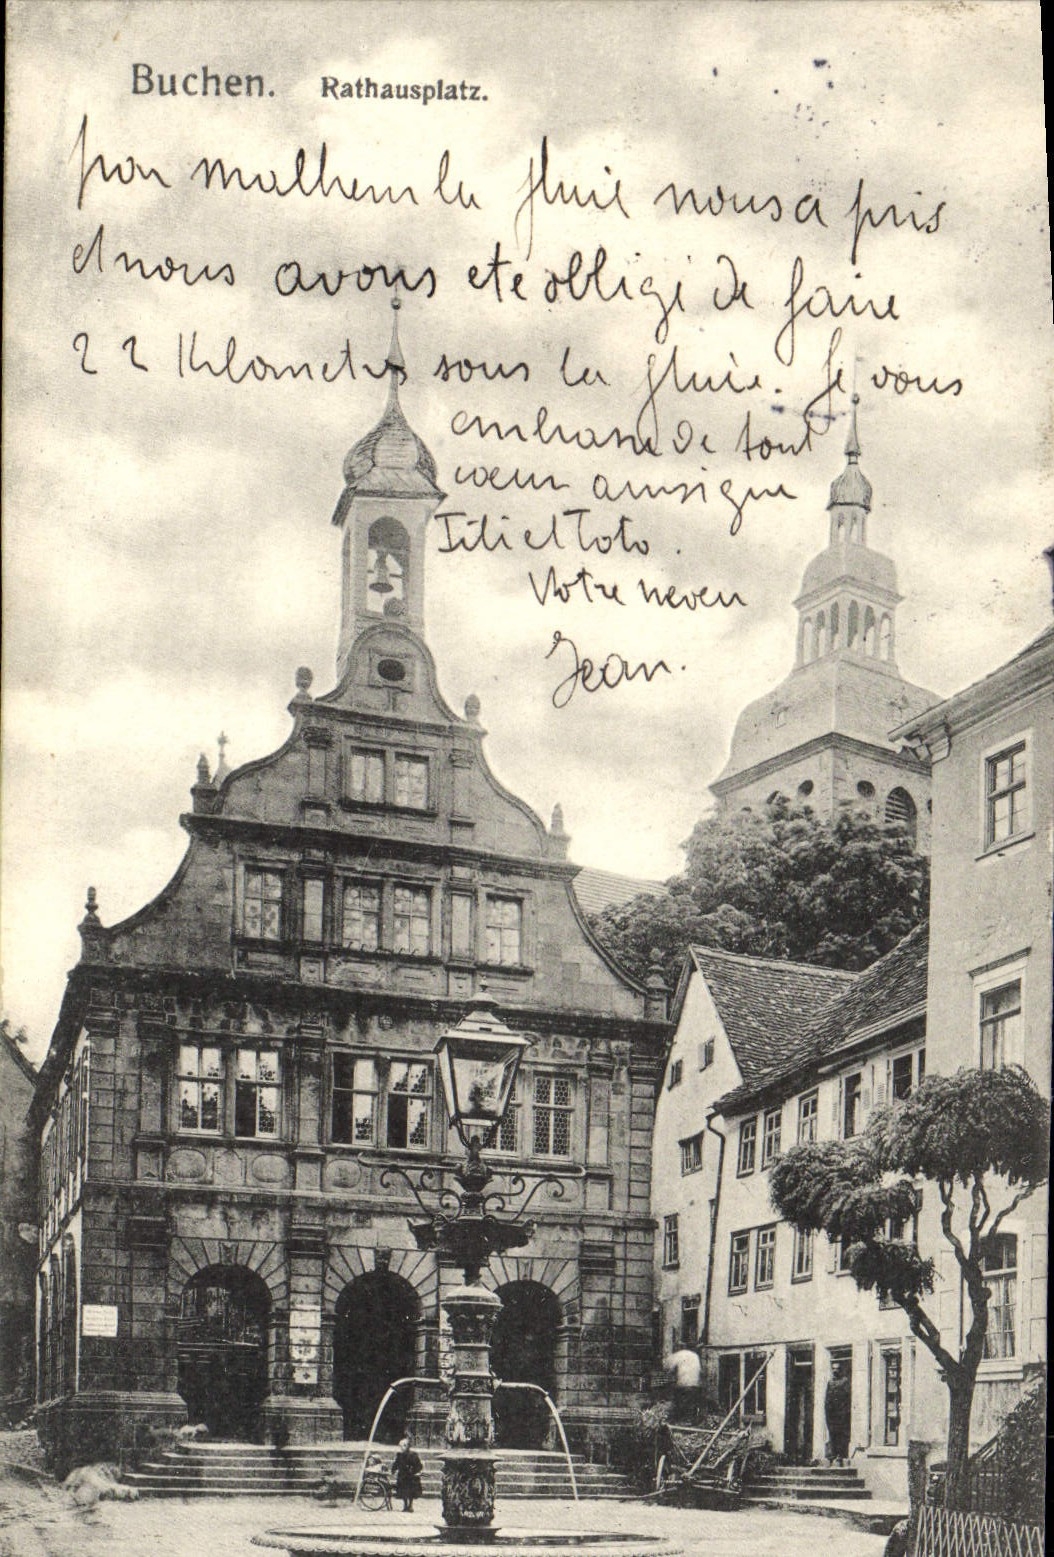 Buchen. Rathausplatz.
par malheur la pluie nous a pris
et nous avons ete obligé de faire
22 Kilometres sous la pluie. Je vous
embrasse de tout
cœur ainsi que
Fifi et Toto.
Votre neveu
Jean.